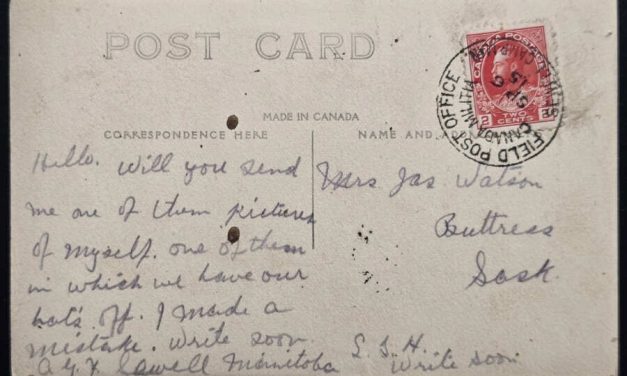 POST CARD
MADE IN CANADA
CORRESPONDENCE HERE
NAME AND ADD
Hello. Will you send
me one of them pictures
of myself. one of them
in which we have our
hats off. I made a
mistake. Write soon
Sewell Manitoba
Mrs Jas Watson
Buttress
Sask.
S. J. H.
Write soon
CANADA POSTAGE
2 TWO CENTS 2
FIELD POST OFFICE
CANADA MILITIA
SP 6
15